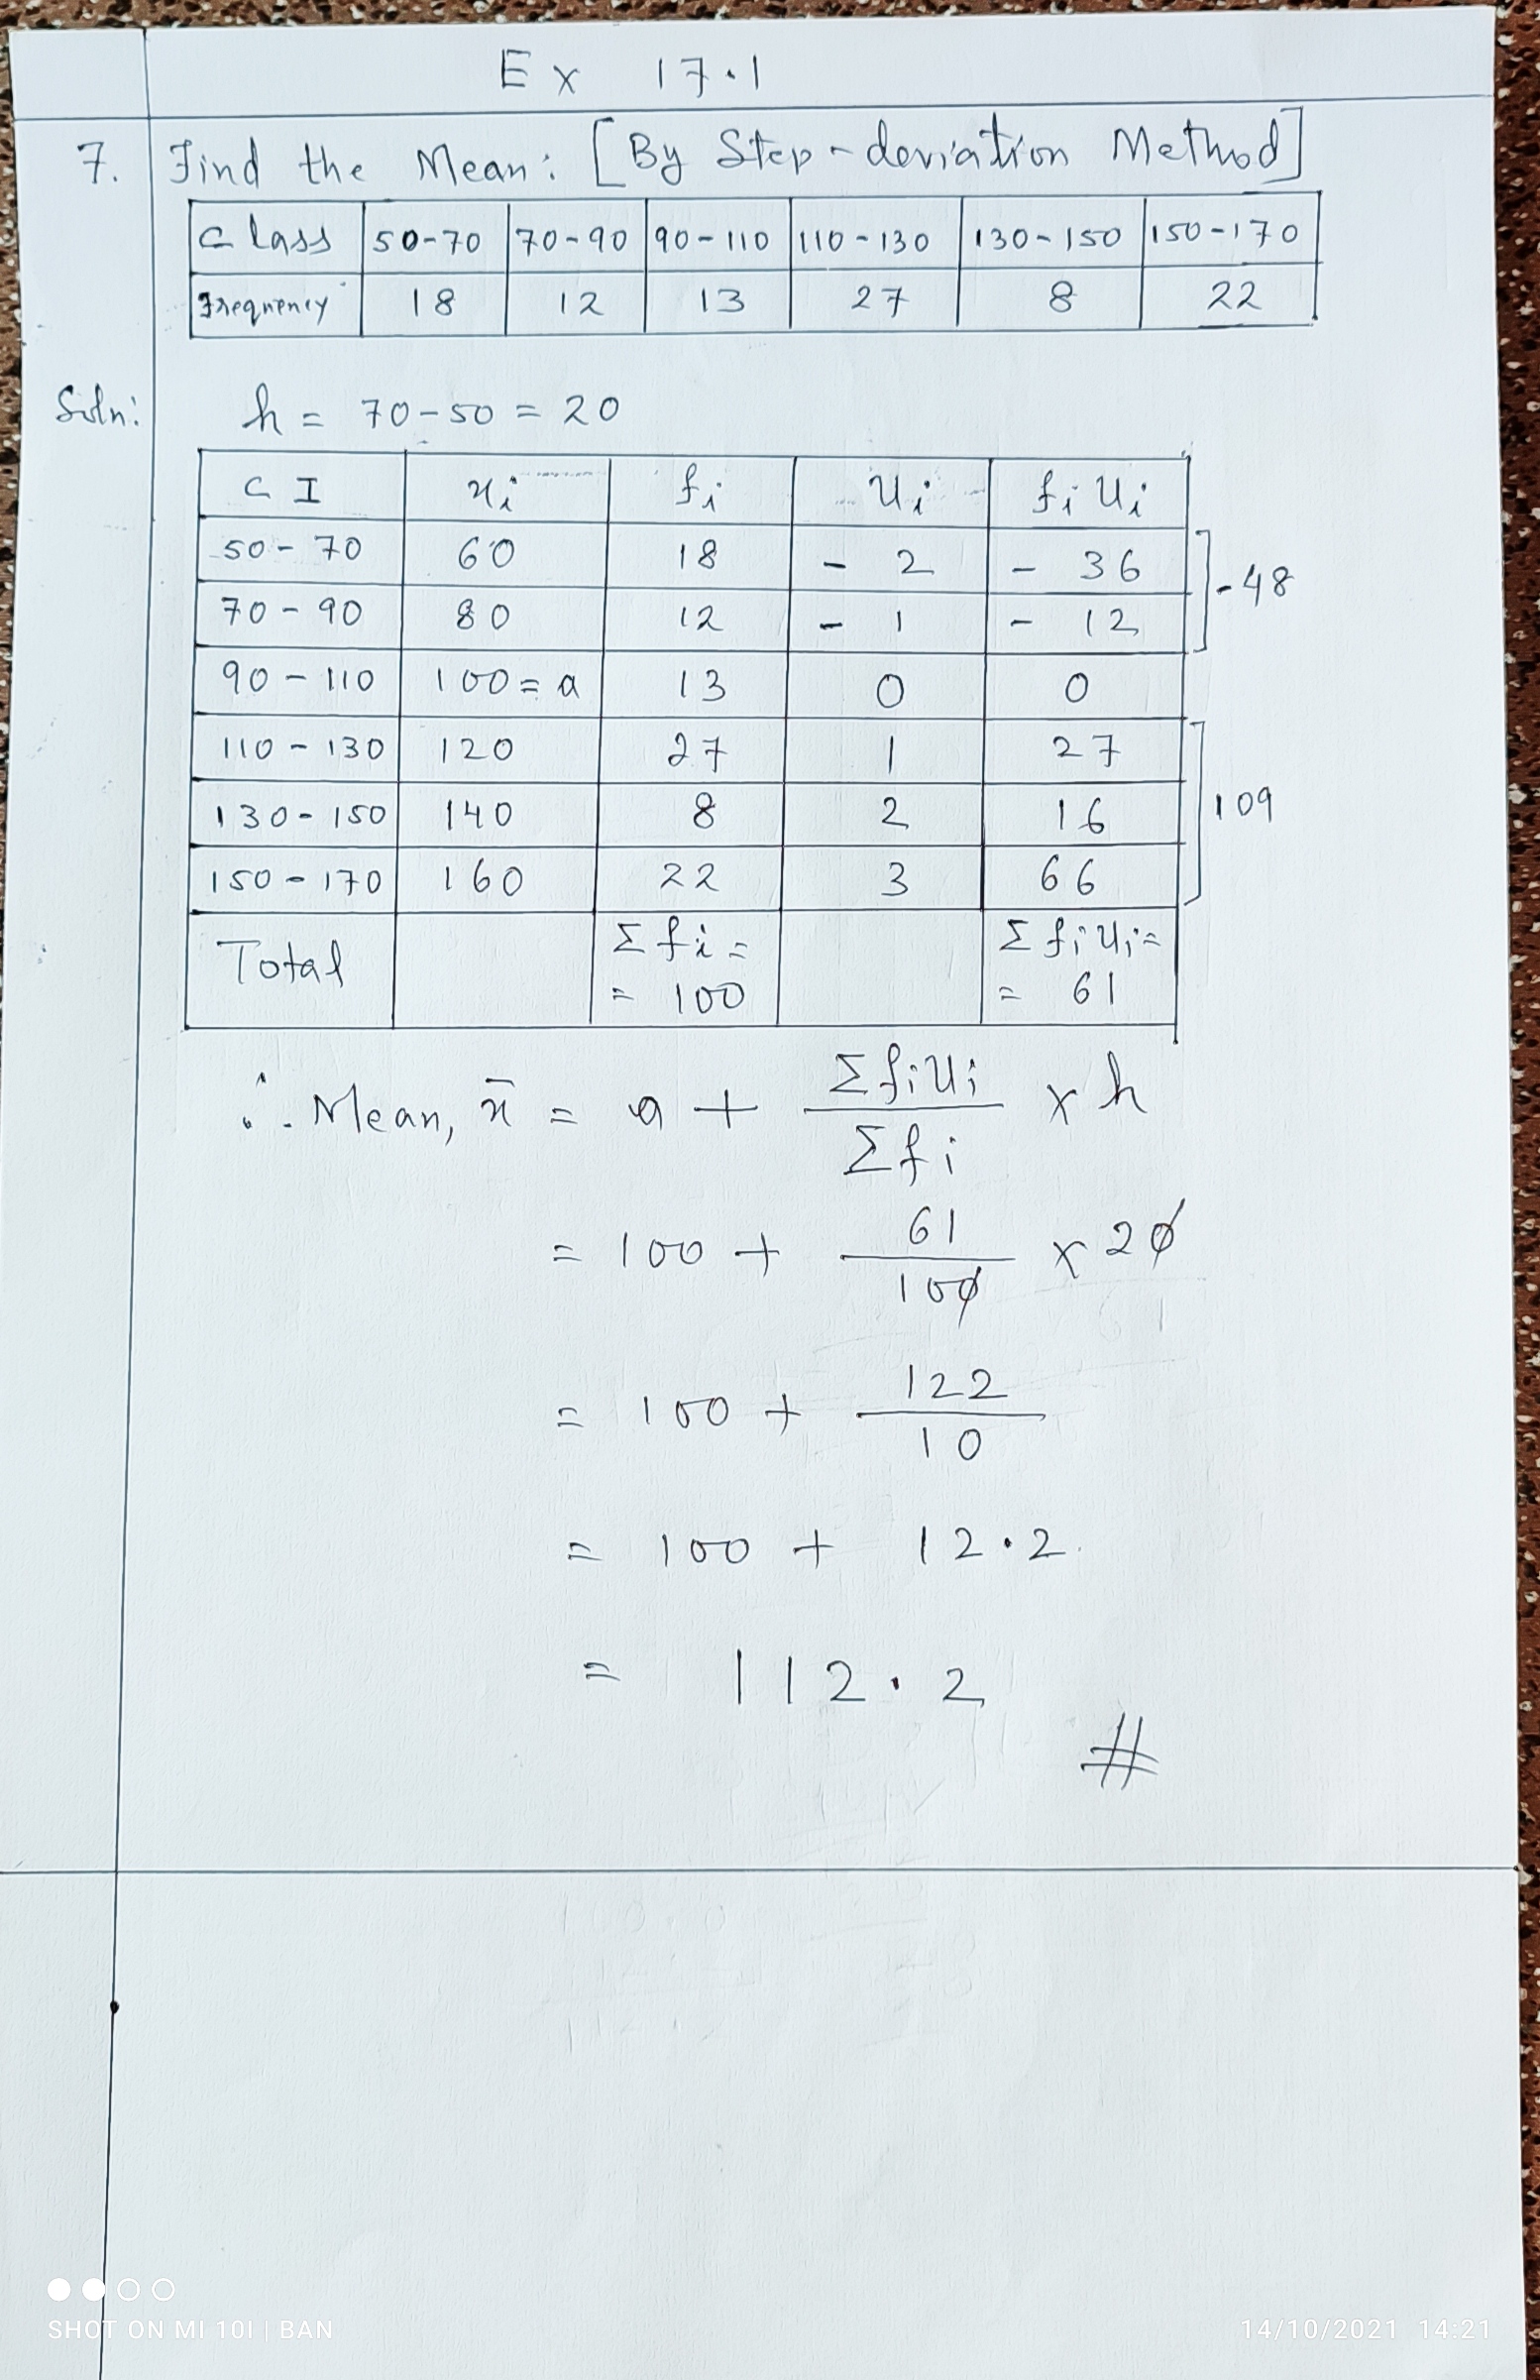 Ex 17.1
7. Find the Mean: [By Step-deviation Method]
Class 50-70 70-90 90-110 110-130 130-150 150-170
Frequency 18 12 13 27 8 22
Soln: h = 70-50 = 20
C I xi fi ui fi ui
50-70 60 18 -2 -36
70-90 80 12 -1 -12
-48
90-110 100=a 13 0 0
110-130 120 27 1 27
130-150 140 8 2 16
109
150-170 160 22 3 66
Total Σfi = = 100 Σfiui = = 61
∴ Mean, x̄ = a + Σfiui / Σfi × h
= 100 + 61/100 × 20
= 100 + 122/10
= 100 + 12.2
= 112.2
#
SHOT ON MI 10I | BAN
14/10/2021 14:21